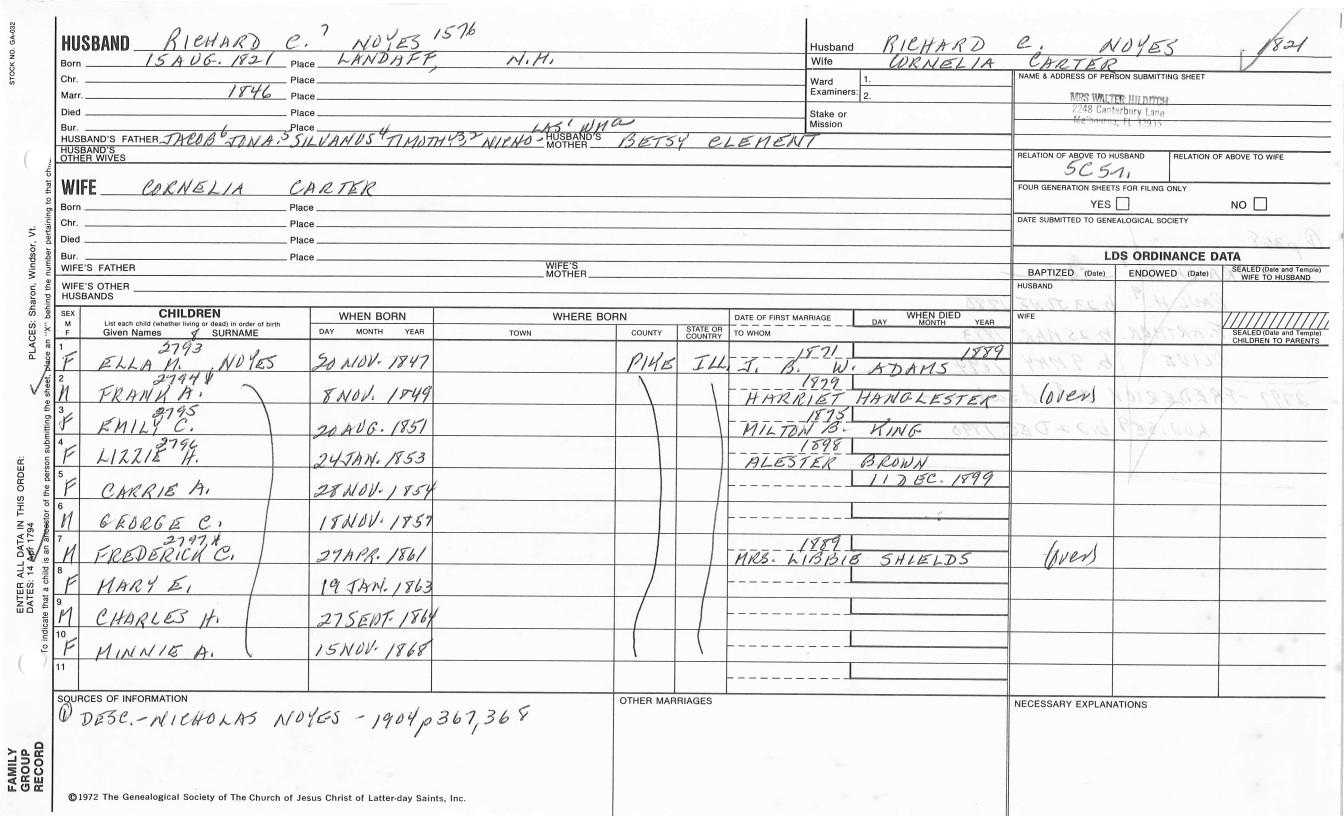 STOCK NO. GA-032
HUSBAND RICHARD C. 7 NOYES 1576
Born 15 AUG. 1821 Place LANDAFF, N.H.
Chr. Place
Marr. 1846 Place
Died Place
Bur. Place
HUSBAND'S FATHER JACOB 6 JONA. 5 SILVANUS 4 TIMOTHY 3 2 NICHO- LAS' WMA HUSBAND'S MOTHER BETSY CLEMENT
HUSBAND'S OTHER WIVES
WIFE CORNELIA CARTER
Born Place
Chr. Place
Died Place
Bur. Place
WIFE'S FATHER WIFE'S MOTHER
WIFE'S OTHER HUSBANDS
Husband RICHARD C. NOYES 1821
Wife CORNELIA CARTER
Ward Examiners: 1.
2.
Stake or Mission
NAME & ADDRESS OF PERSON SUBMITTING SHEET
MRS WALTER HILDITCH
2248 Canterbury Lane
Melbourne, FL
RELATION OF ABOVE TO HUSBAND RELATION OF ABOVE TO WIFE
5C5
FOUR GENERATION SHEETS FOR FILING ONLY
YES NO
DATE SUBMITTED TO GENEALOGICAL SOCIETY
LDS ORDINANCE DATA
BAPTIZED (Date) ENDOWED (Date) SEALED (Date and Temple) WIFE TO HUSBAND
HUSBAND
WIFE
SEALED (Date and Temple) CHILDREN TO PARENTS
SEX M F CHILDREN List each child (whether living or dead) in order of birth Given Names SURNAME WHEN BORN DAY MONTH YEAR WHERE BORN TOWN COUNTY STATE OR COUNTRY DATE OF FIRST MARRIAGE TO WHOM WHEN DIED DAY MONTH YEAR
2793 1871 1889
1 F ELLA M. NOYES 20 NOV. 1847 PIKE ILL. J. B. W. ADAMS
2794 1879
2 M FRANK A. 8 NOV. 1849 HARRIET HANGLESTER (over)
2795 1875
3 F EMILY C. 20 AUG. 1851 MILTON B. KING
2796 1898
4 F LIZZIE H. 24 JAN. 1853 ALESTER BROWN
5 F CARRIE A. 28 NOV. 1854 11 DEC. 1899
6 M GEORGE C. 18 NOV. 1857
2797 1889
7 M FREDERICK C. 27 APR. 1861 MRS. LIBBIE SHIELDS (over)
8 F MARY E. 19 JAN. 1863
9 M CHARLES H. 27 SEPT. 1864
10 F MINNIE A. 15 NOV. 1868
11
SOURCES OF INFORMATION
① DESC.-NICHOLAS NOYES - 1904 p 367, 368
OTHER MARRIAGES
NECESSARY EXPLANATIONS
©1972 The Genealogical Society of The Church of Jesus Christ of Latter-day Saints, Inc.
FAMILY GROUP RECORD
ENTER ALL DATA IN THIS ORDER:
DATES: 14 Apr 1794
PLACES: Sharon, Windsor, Vt.
To indicate that a child is an ancestor of the person submitting the sheet, place an "X" behind the number pertaining to that